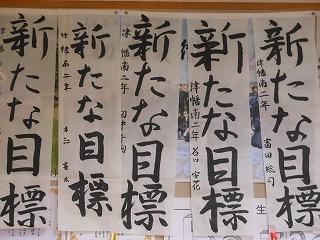 新たな目標
津幡南二年
富田 総司
新たな目標
津幡南二年
新たな目標
津幡南二年
新たな目標
津幡南二年
新たな目標
津幡南二年
生